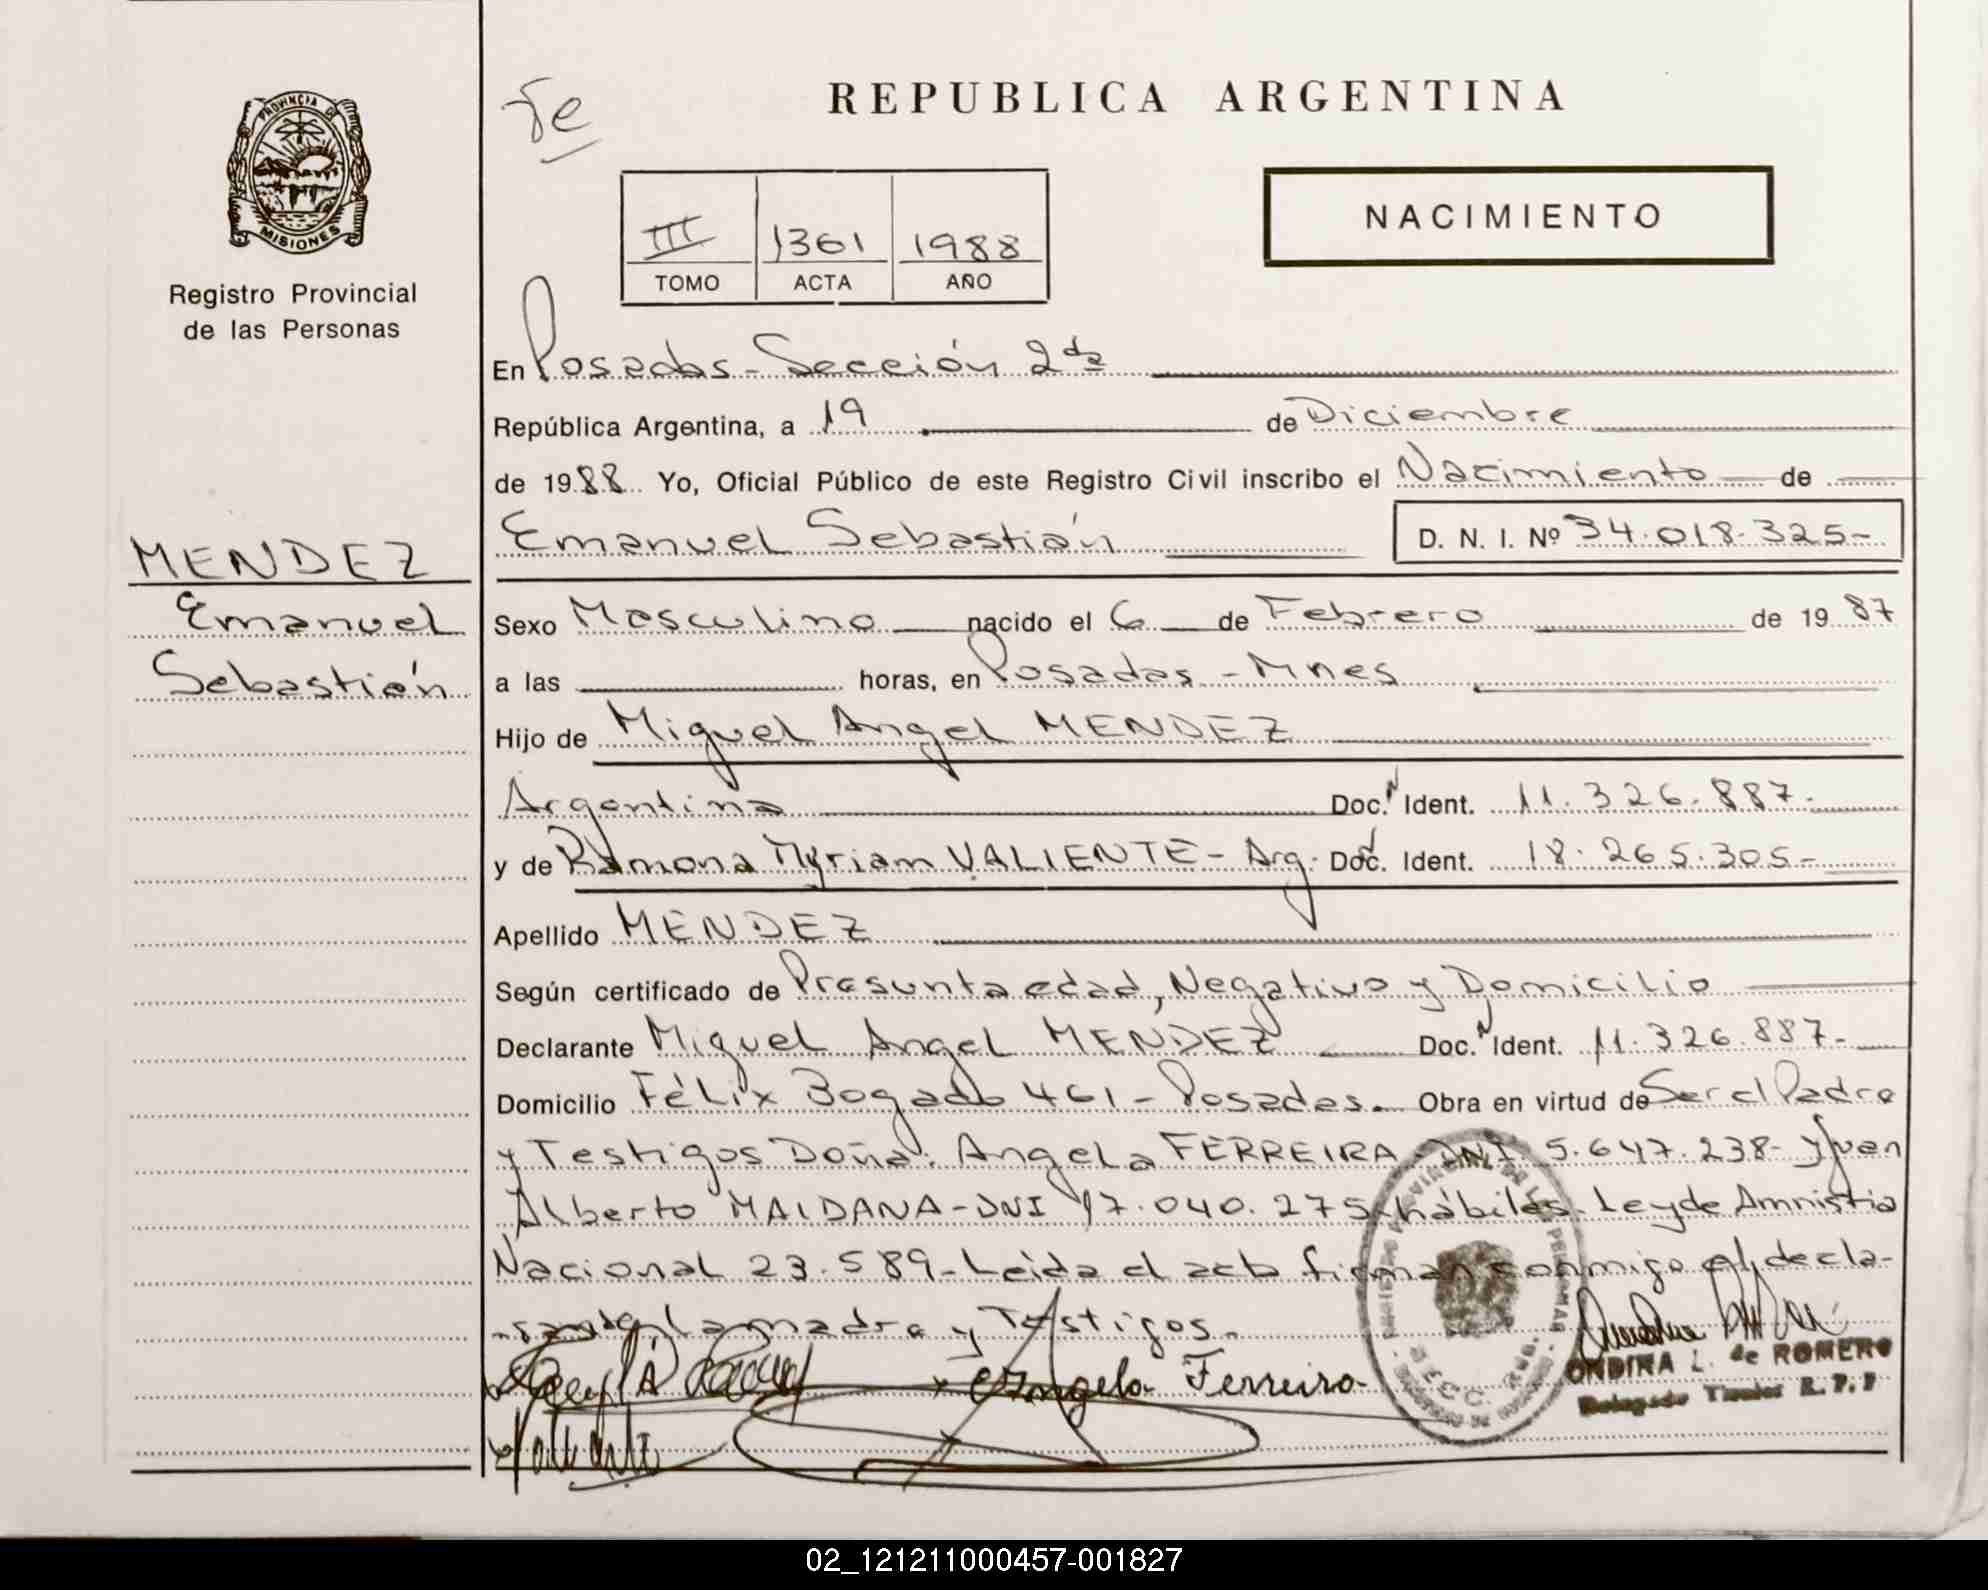 PROVINCIA DE
MISIONES
Registro Provincial
de las Personas
MENDEZ
Emanuel
Sebastián
REPUBLICA ARGENTINA
NACIMIENTO
III 1361 1988
TOMO ACTA AÑO
En Posadas - Sección 2da
República Argentina, a 19 de Diciembre
de 1988 Yo, Oficial Público de este Registro Civil inscribo el Nacimiento de
Emanuel Sebastián D. N. I. Nº 34.018.325-
Sexo Masculino nacido el 6 de Febrero de 1987
a las horas, en Posadas - Mnes
Hijo de Miguel Angel MENDEZ
Argentina Doc. Ident. 11.326.887.
y de Ramona Myriam VALIENTE - Arg. Doc. Ident. 18.265.305-
Apellido MENDEZ
Según certificado de Presunta edad, Negativo y Domicilio
Declarante Miguel Angel MENDEZ Doc. Ident. 11.326.887-
Domicilio Félix Bogado 461 - Posadas. Obra en virtud de Ser el Padre
y Testigos Doña: Angela FERREIRA - DNI 5.647.238- y Juan
Alberto MAIDANA - DNI 17.040.275 hábiles - Ley de Amnistia
Nacional 23.589 - Leida el acta firman conmigo el decla-
rante, la madre y Testigos.
Angela Ferreira
ONDINA L. de ROMERO
Delegado Titular R. P. P
02_121211000457-001827